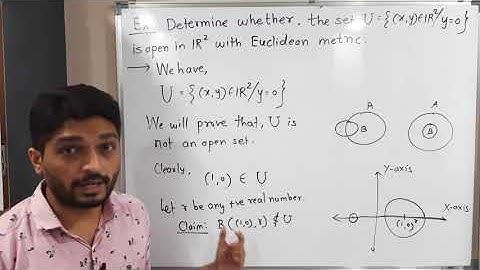 Ex. Determine whether, the set U = {(x,y)∈ℝ²/y=0}
is open in ℝ² with Euclidean metric.
→ We have,
U = {(x,y)∈ℝ²/y=0}
We will prove that, U is
not an open set.
Clearly, (1,0) ∈ U
Let r be any +ve real number.
Claim: B((1,0),r) ⊄ U
A
B
A
B
Y-axis
X-axis
(1,0)